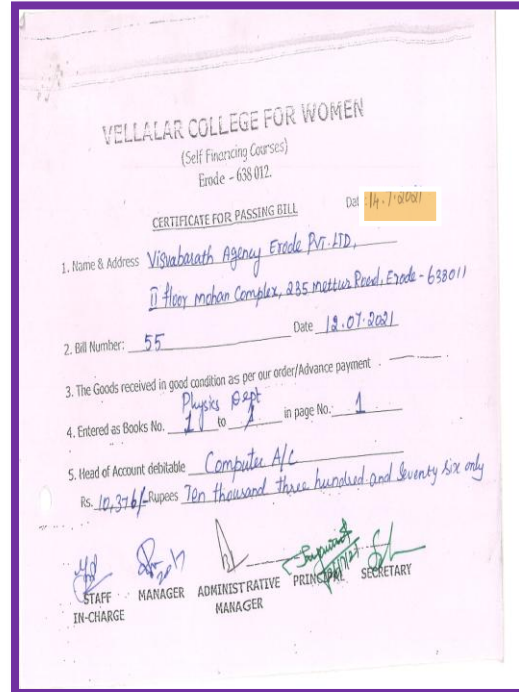 VELLALAR COLLEGE FOR WOMEN
(Self Financing Courses)
Erode - 638 012.
CERTIFICATE FOR PASSING BILL
Dat : 14.7.2021
1. Name & Address Visvabarath Agency Erode Pvt. LTD,
II floor mohan Complex, 235 mettur Road, Erode - 638011
2. Bill Number: 55 Date 12.07.2021
3. The Goods received in good condition as per our order/Advance payment
Physics Dept
4. Entered as Books No. 1 to 1 in page No. 1
5. Head of Account debitable Computer A/C
Rs. 10,376/- Rupees Ten thousand three hundred and Seventy Six only
STAFF IN-CHARGE MANAGER ADMINISTRATIVE MANAGER PRINCIPAL SECRETARY